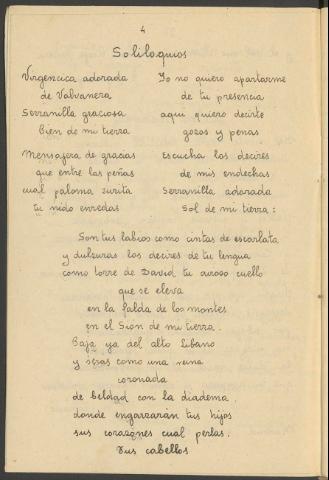 4
Soliloquios
Virgencica adorada
de Valvanera
Serranilla graciosa
bien de mi tierra
Mensajera de gracias
que entre las peñas
cual paloma zurita
tu nido enredas
Yo no quiero apartarme
de tu presencia
aquí quiero decirte
gozos y penas
Escucha los decires
de mis endechas
Serranilla adorada
Sol de mi tierra:
Son tus labios como cintas de escarlata
y dulzuras los decires de tu lengua
como torre de David tu airoso cuello
que se eleva
en la falda de los montes
en el Sion de mi tierra.
Baja ya del alto Libano
y seras como una reina
coronada
de beldad con la diadema.
donde engarzarán tus hijos
sus corazones cual perlas.
Tus cabellos